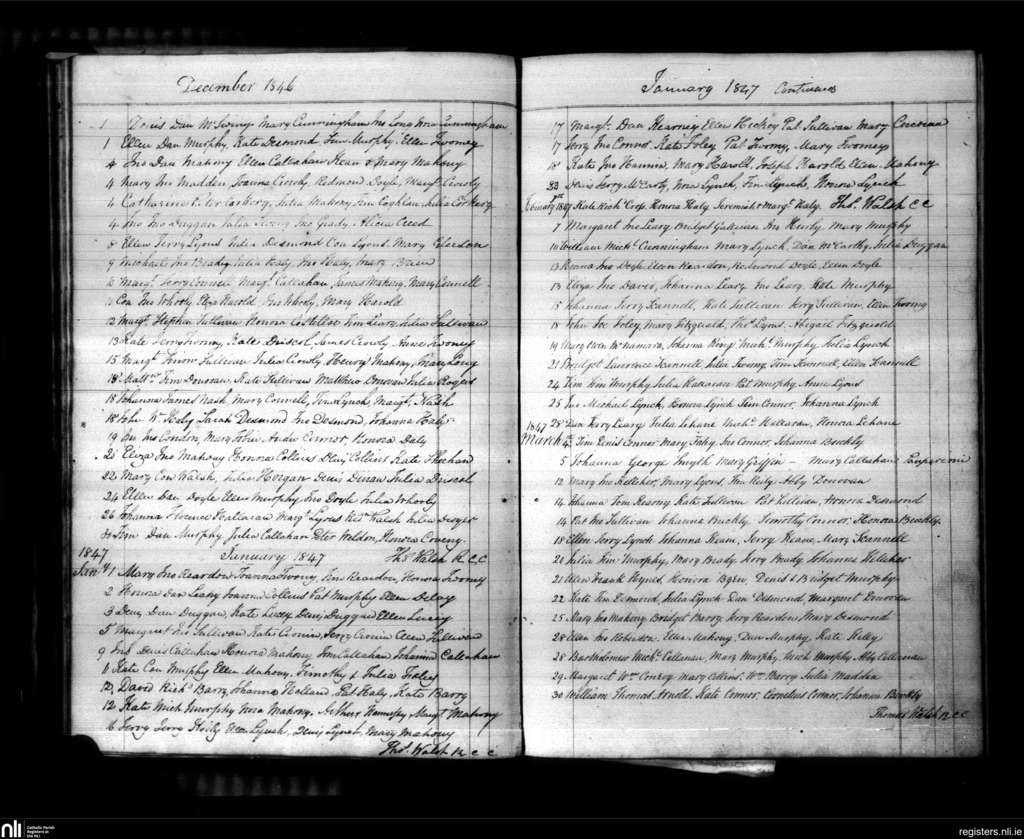 December 1846
1 Denis Dan McSwiny Mary Cunningham Jno Long Cunningham
1 Ellen Dan Murphy, Kate Desmond Murphy Ellen Twomey
4 Jno Dan Mahony Ellen Callahan Kean & Mary Mahony
4 Mary Jno Madden Joanna Crowly Redmond Doyle, Margt Crowly
4 Catharine Peter Corkery, Julia Mahony Coghlan Julia Corkery
4 Jno Jno Duggan Julia Jno Grady Alicia Creed
8 Ellen Terry Lyons Julia Desmond Con Lyons Mary
9 Michael Jno Julia Jno Daly, Mary Brien
Margt Terry Connell Margt Callahan James Mahony, Mary Connell
Con Jno Whooly Eliza Harold Jno Whooly, Mary Harold
12 Margt Stephen Sullivan Honora Costelloe Tim Leary Julia Sullivan
13 Kate Terry Twomy, Kate Driscol, James Crowly Anne Twomey
15 Margt Sullivan Julia Crowly Henry Mahony, Mary Long
18 Mattw Tim Donovan, Kate Sullivan Matthew Donovan Julia Rogers
18 Johanna James Nash Mary Connell, Lynch, Margt Walsh
18 John Wm Haly Sarah Desmond Jno Desmond, Johanna Haly
19 Jno Jno Condon, Mary Tobin Andw Connor, Honora Daly
21 Eliza Jno Mahony Honora Collins Denis Collins Kate Sheehan
22 Mary Con Walsh, Julia Horgan Denis Julia Driscol
24 Ellen Dan Doyle Ellen Murphy, Jno Doyle Julia Whooly
26 Johanna Florence Halloran Margt Lyons Richd Walsh Julia Dwyer
30 Tim Dan Murphy Julia Callahan Peter Waldon, Honora Coveny
1847 January 1847 Ths Walsh R.C.C
Jany 1 Mary Jno Reardon Joanna Twomy, Jno Reardon, Honora Twomey
2 Honora Dan Leahy Joanna Collins Pat Murphy Ellen Delay
3 Denis, Dan Duggan, Kate Lucey Denis Duggan Ellen Lucey
5 Margaret Jno Sullivan Kate Cronin, Terry Cronin Ellen Sullivan
9 Jno Denis Callahan Honora Mahony Tim Callahan Johanna Callahan
11 Kate Con Murphy Ellen Mahony, Timothy & Julia Foley
12 David Richd Barry Johanna Holland, Pat Haly, Kate Barry
12 Kate Mich Murphy Nora Mahony, Arthur Hennessy Margt Mahony
6 Terry Terry Reily Ellen Lynch, Denis Lynch, Mary Mahony
Ths Walsh R C C
January 1847 Continued
17 Margt Dan Kearney Ellen Hickey Pat Sullivan Mary Corcoran
17 Terry Jno Connor Kate Foley Pat Twomy, Mary Twomey
18 Kate Jno Mary Harold, Joseph Harold Ellen Mahony
23 Denis Terry McCarty, Nora Lynch, Tim Lynch, Honora Lynch
February 1st 1847 Kate Richd Honora Haly Jeremiah & Margt Haly Ths Walsh CC
7 Margaret Jno Leary Bridget Gallivan Jno Hurly Mary Murphy
10 William Michl Cunningham Mary Lynch, Dan McCarthy, Julia Duggan
13 Jno Doyle Ellen Reardon, Redmond Doyle Ellen Doyle
13 Eliza Jno Davis, Johanna Leary Jno Leary Kate Murphy
15 Johanna Terry Scannell, Kate Sullivan Terry Sullivan, Ellen Twomy
18 John Jno Foley, Mary Fitzgerald, Thos Lyons, Abigail Fitzgerald
19 Mary McNamara, Johanna Ring Michl Murphy, Julia Lynch
21 Bridget Laurence Scannell Julia Twomy, Tim Scannell, Ellen Scannell
24 Tim Murphy Julia Halloran Pat Murphy Anne Lyons
25 Jno Michael Lynch, Honora Lynch Tim Connor, Johanna Lynch
28 Dan Terry Leary Julia Lehane Michl Halloran, Honora Lehane
1847
March 4th Tim Denis Connor Mary Fahy, Jno Connor, Johanna Buckly
5 Johanna George Smyth Mary Griffin – Mary Callahan
12 Mary Jno Kelleher, Mary Lyons, Reily, Aby Donovan
14 Johanna Tom Kearny Kate Sullivan Pat Sullivan, Honora Desmond
14 Pat Jno Sullivan Johanna Buckly Timothy Connor, Honora Buckly
18 Ellen Terry Lynch Johanna Keane, Terry Keane, Mary Scannell
20 Julia Murphy, Mary Brady, Terry Brady Johanna Kelleher
21 Ellen Frank Hynes, Honora Denis & Bridget Murphy
22 Kate Tim Desmond, Julia Lynch Danl Desmond Margaret Donovan
25 Mary Jno Mahony Bridget Barry Terry Reardon Mary Desmond
28 Ellen Jno Robinson, Ellen Mahony, Dan Murphy, Kate Kelly
28 Bartholomew Michl Callanan, Mary Murphy, Mich Murphy, Aby Callanan
29 Margaret Wm Conry Mary Collins, Wm Barry Julia Madden
30 William Thomas Arnold, Kate Connor, Cornelius Connor, Johanna Buckly
Thomas Walsh R C C
nli
Catholic Parish
Registers at
the NLI
registers.nli.ie